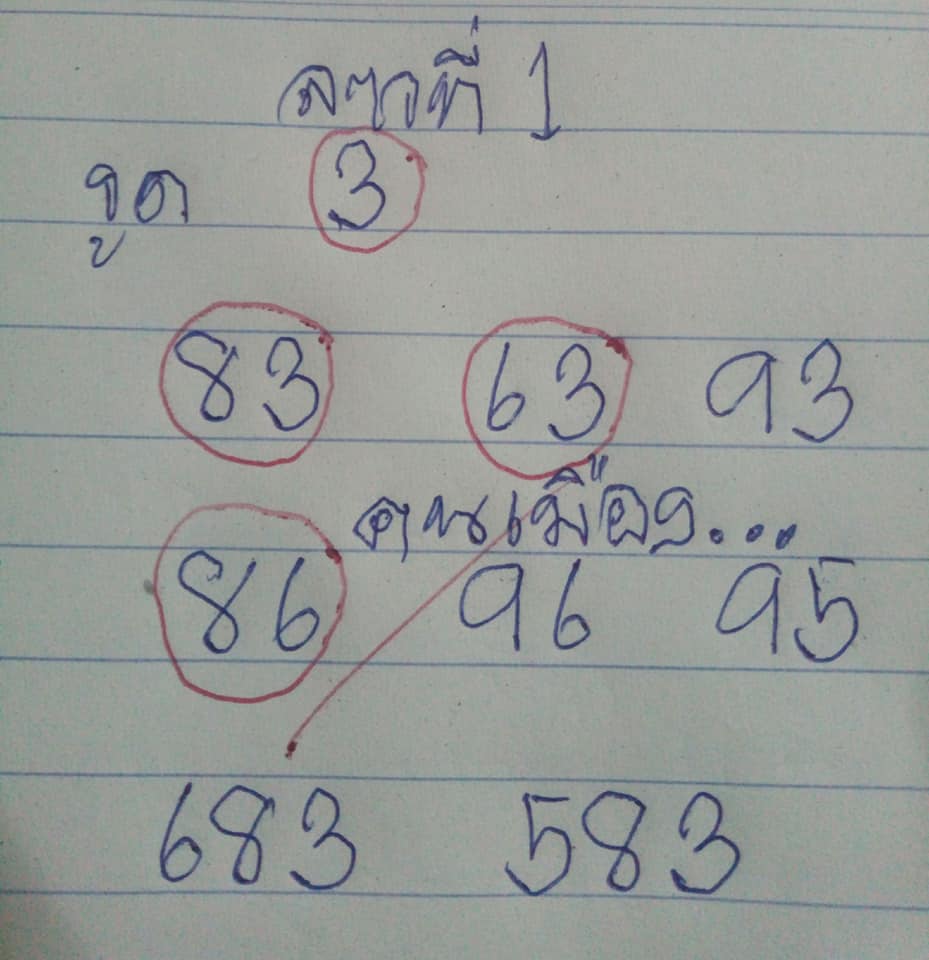 ลาวที่ 1
รูด 3
83 63 93
คนเมือง...
86 96 95
683 583